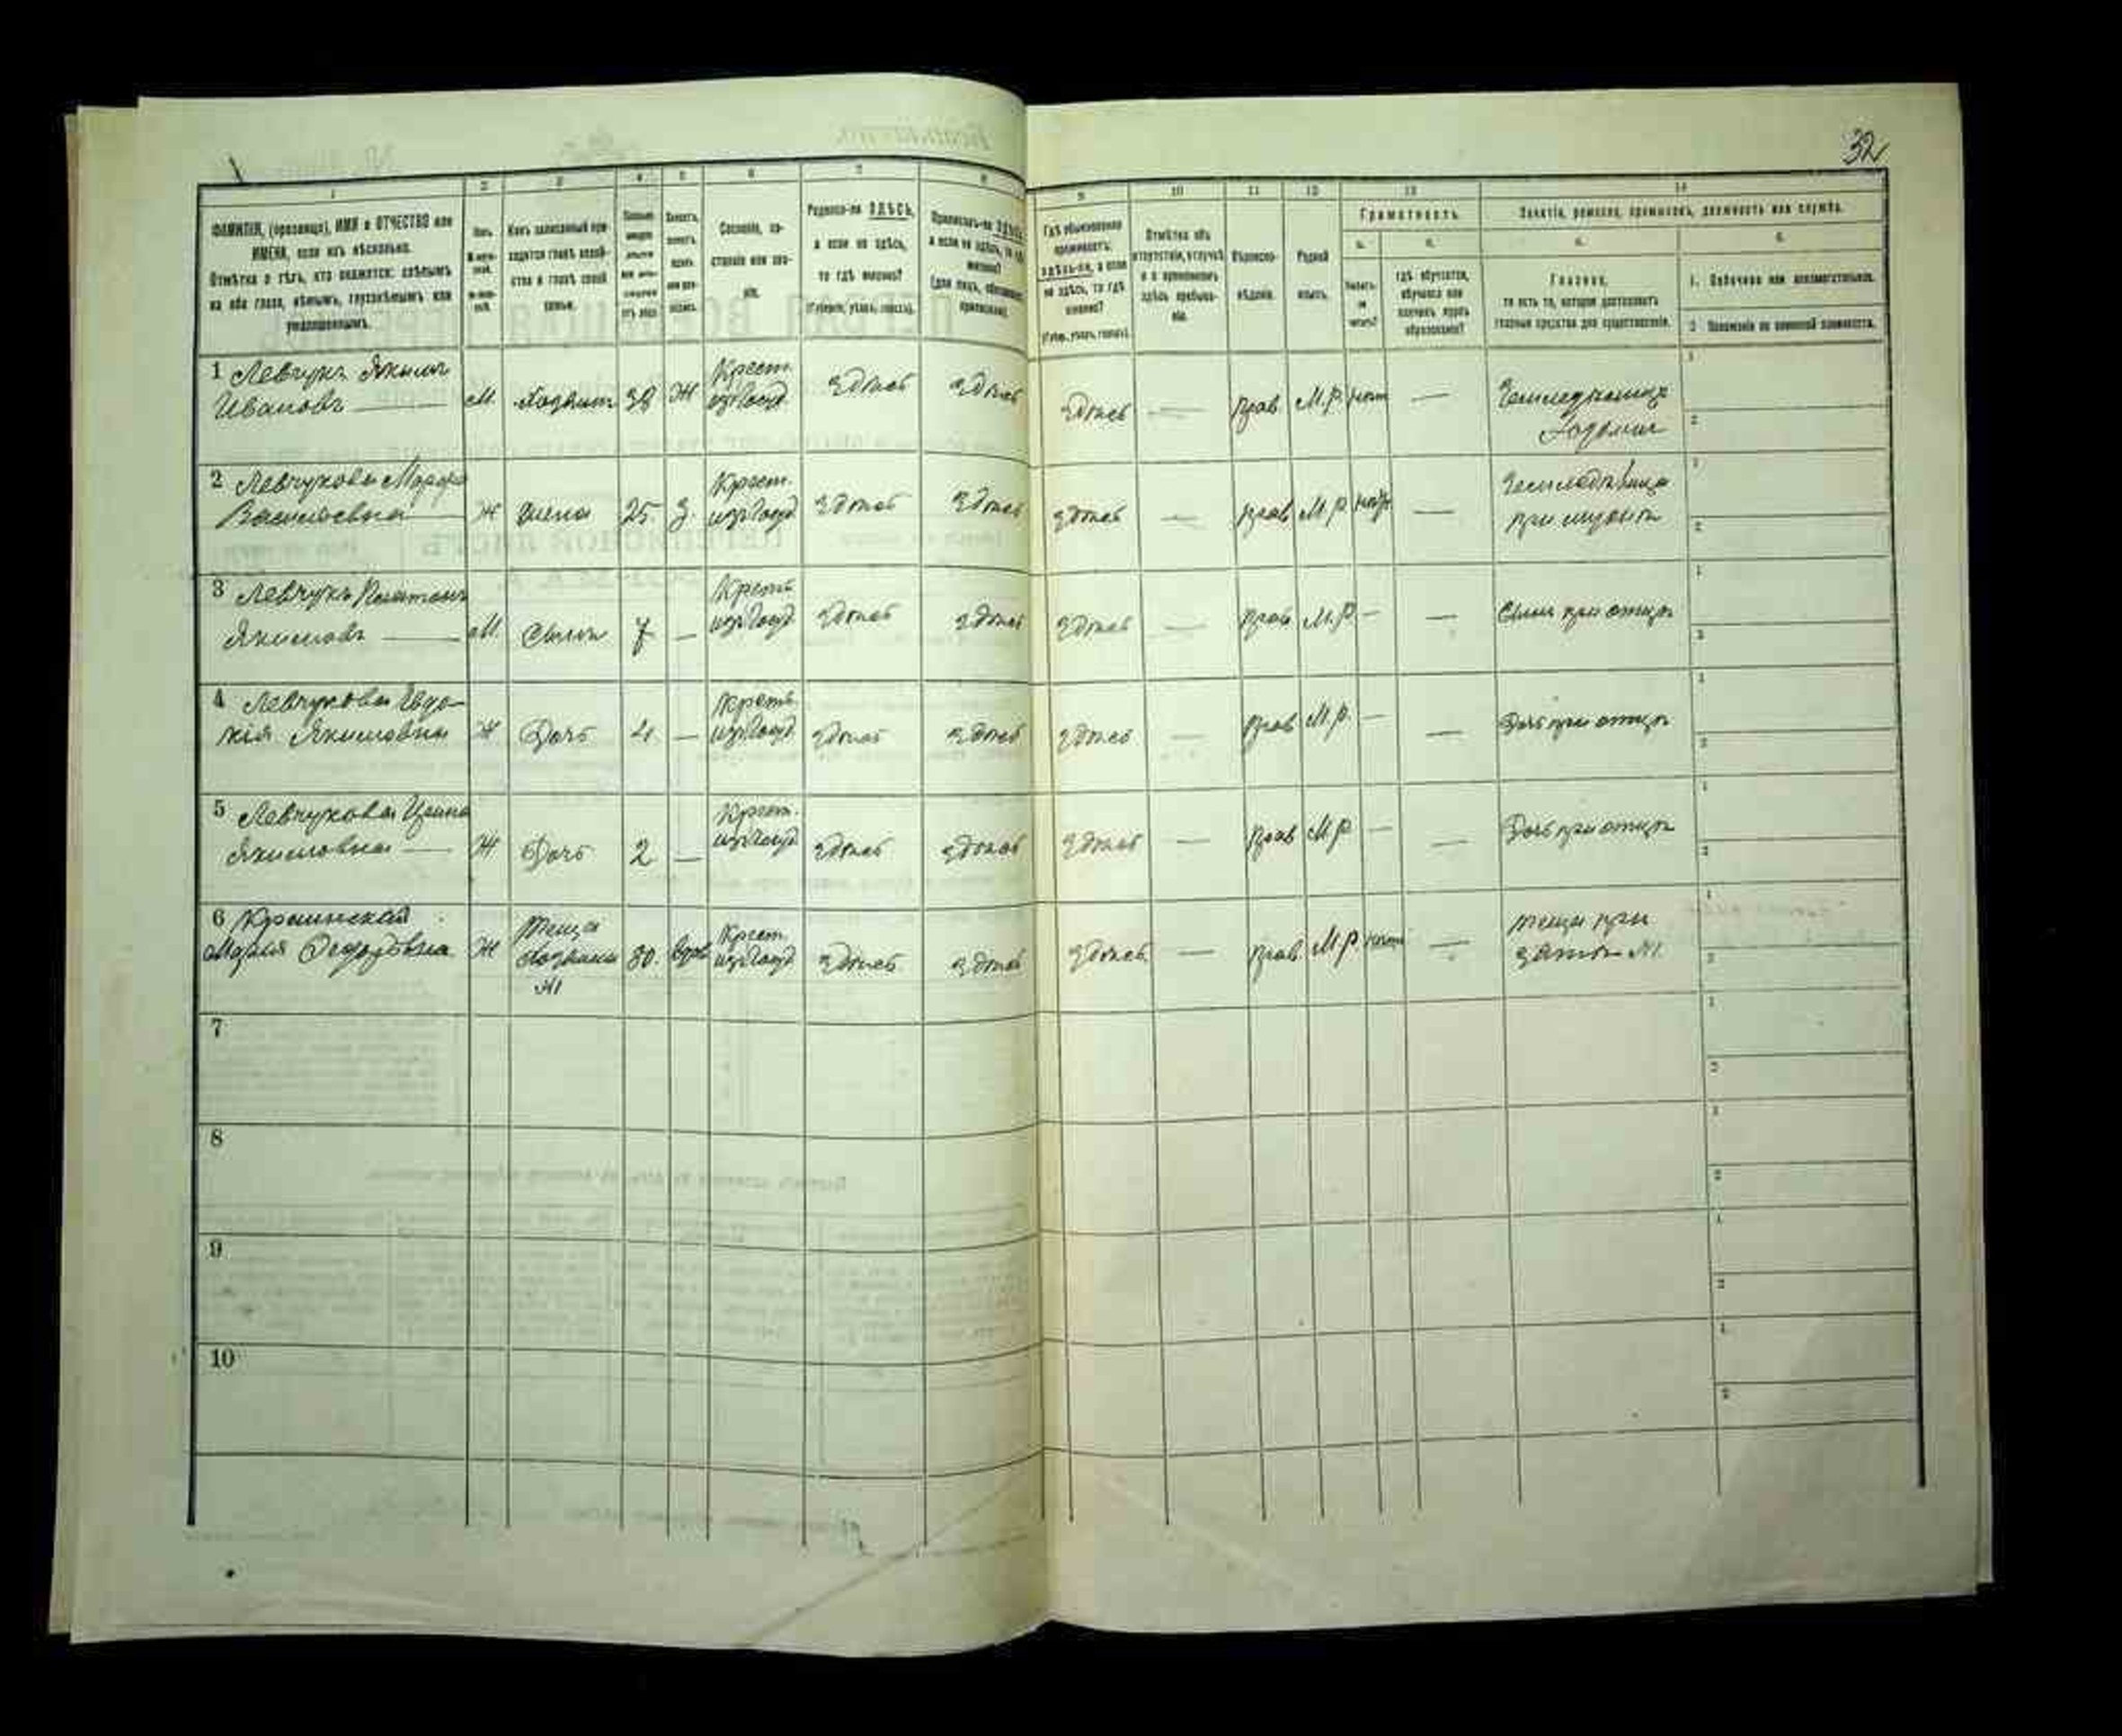 32
1 2 3 4 5 6 7 8 9 10 11 12 13 14
ФАМИЛІЯ, (прозвище), ИМЯ и ОТЧЕСТВО или
ИМЕНА, если ихъ нѣсколько.
Отмѣтка о тѣхъ, кто окажется: слѣпымъ
на оба глаза, нѣмымъ, глухонѣмымъ или
умалишеннымъ.
Полъ.
Какъ записанный при-
ходится главѣ хозяй-
ства и главѣ своей
семьи.
Сословіе, со-
стояніе или зва-
ніе.
Родился-ли ЗДѢСЬ,
а если не здѣсь,
то гдѣ именно?
(Губернія, уѣздъ, городъ).
Приписанъ-ли ЗДѢСЬ,
а если не здѣсь, то гдѣ
именно?
Гдѣ обыкновенно
проживаетъ:
здѣсь-ли, а если
не здѣсь, то гдѣ
именно?
(Губер., уѣздъ, городъ).
Отмѣтка объ
отсутствіи, отлучкѣ
и о временномъ
здѣсь пребыва-
ніи.
Вѣроиспо-
вѣданіе.
Родной
языкъ.
Грамотность.
а. б.
Умѣетъ-
ли
читать?
гдѣ обучается,
обучался или
кончилъ курсъ
образованія?
Занятіе, ремесло, промыселъ, должность или служба.
а. б.
Главное,
то есть то, которое доставляетъ
главныя средства для существованія.
1. Побочное или вспомогательное.
2 Положеніе по воинской повинности.
1 Левчукъ Якимъ
Ивановъ М. Хозяинъ 38 Ж Крест.
изъ Госуд. здѣсь здѣсь здѣсь — прав М.р. нѣт — Земледѣлецъ
1
2
2 Левчукова Марфа
Васильевна Ж Жена 25 З. Крест.
изъ Госуд здѣсь здѣсь здѣсь — прав М.р нѣт — Земледѣлица
при мужѣ
1
2
3 Левчукъ Платонъ
Якимовъ М. Сынъ 7 — Крест
изъ Госуд здѣсь здѣсь здѣсь — прав М.р — — Сынъ при отцѣ
1
2
4 Левчукова Евдо-
кія Якимовна Ж Дочь 4 — Крест
изъ Госуд здѣсь здѣсь здѣсь — прав М.р. — — Дочь при отцѣ
1
2
5 Левчукова
Якимовна — Ж Дочь 2 — Крест.
изъ Госуд здѣсь здѣсь здѣсь — прав М.р — — Дочь при отцѣ
1
2
6
Марія Федоровна Ж Теща
Хозяина
№1 80. Вдов Крест.
изъ Госуд здѣсь здѣсь здѣсь — прав. М.р. нѣт — теща при
зятѣ №1.
1
2
7
1
2
8
1
2
9
1
2
10
1
2